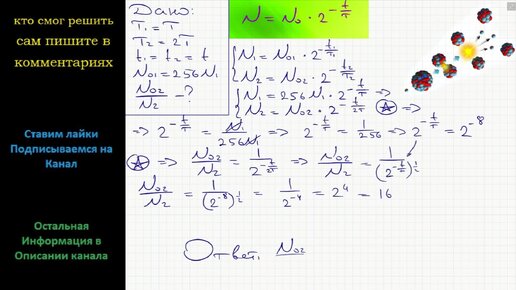 кто смог решить
сам пишите в
комментариях
Ставим лайки
Подписываемся на
Канал
Остальная
Информация в
Описании канала
Дано:
T₁ = T
T₂ = 2T
t₁ = t₂ = t
N₀₁ = 256N₁
N₀₂/N₂ - ?
N = N₀ · 2^(-t/T)
{ N₁ = N₀₁ · 2^(-t₁/T₁)
{ N₂ = N₀₂ · 2^(-t₂/T₂)
{ N₁ = 256N₁ · 2^(-t/T) ⇒
{ N₂ = N₀₂ · 2^(-t/2T) ⍟
⇒ 2^(-t/T) = N₁/256N₁ ⇒ 2^(-t/T) = 1/256 ⇒ 2^(-t/T) = 2^(-8)
⍟ ⇒ N₀₂/N₂ = 1/2^(-t/2T) ⇒ N₀₂/N₂ = 1/(2^(-t/T))^(1/2)
N₀₂/N₂ = 1/(2^(-8))^(1/2) = 1/2^(-4) = 2⁴ = 16
Ответ: N₀₂